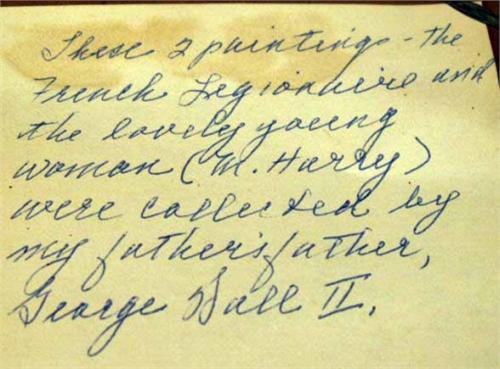 These 2 paintings - the
French Legionnire and
the lovely young
woman (M. Harry)
were collected by
my father's father,
George Ball II.